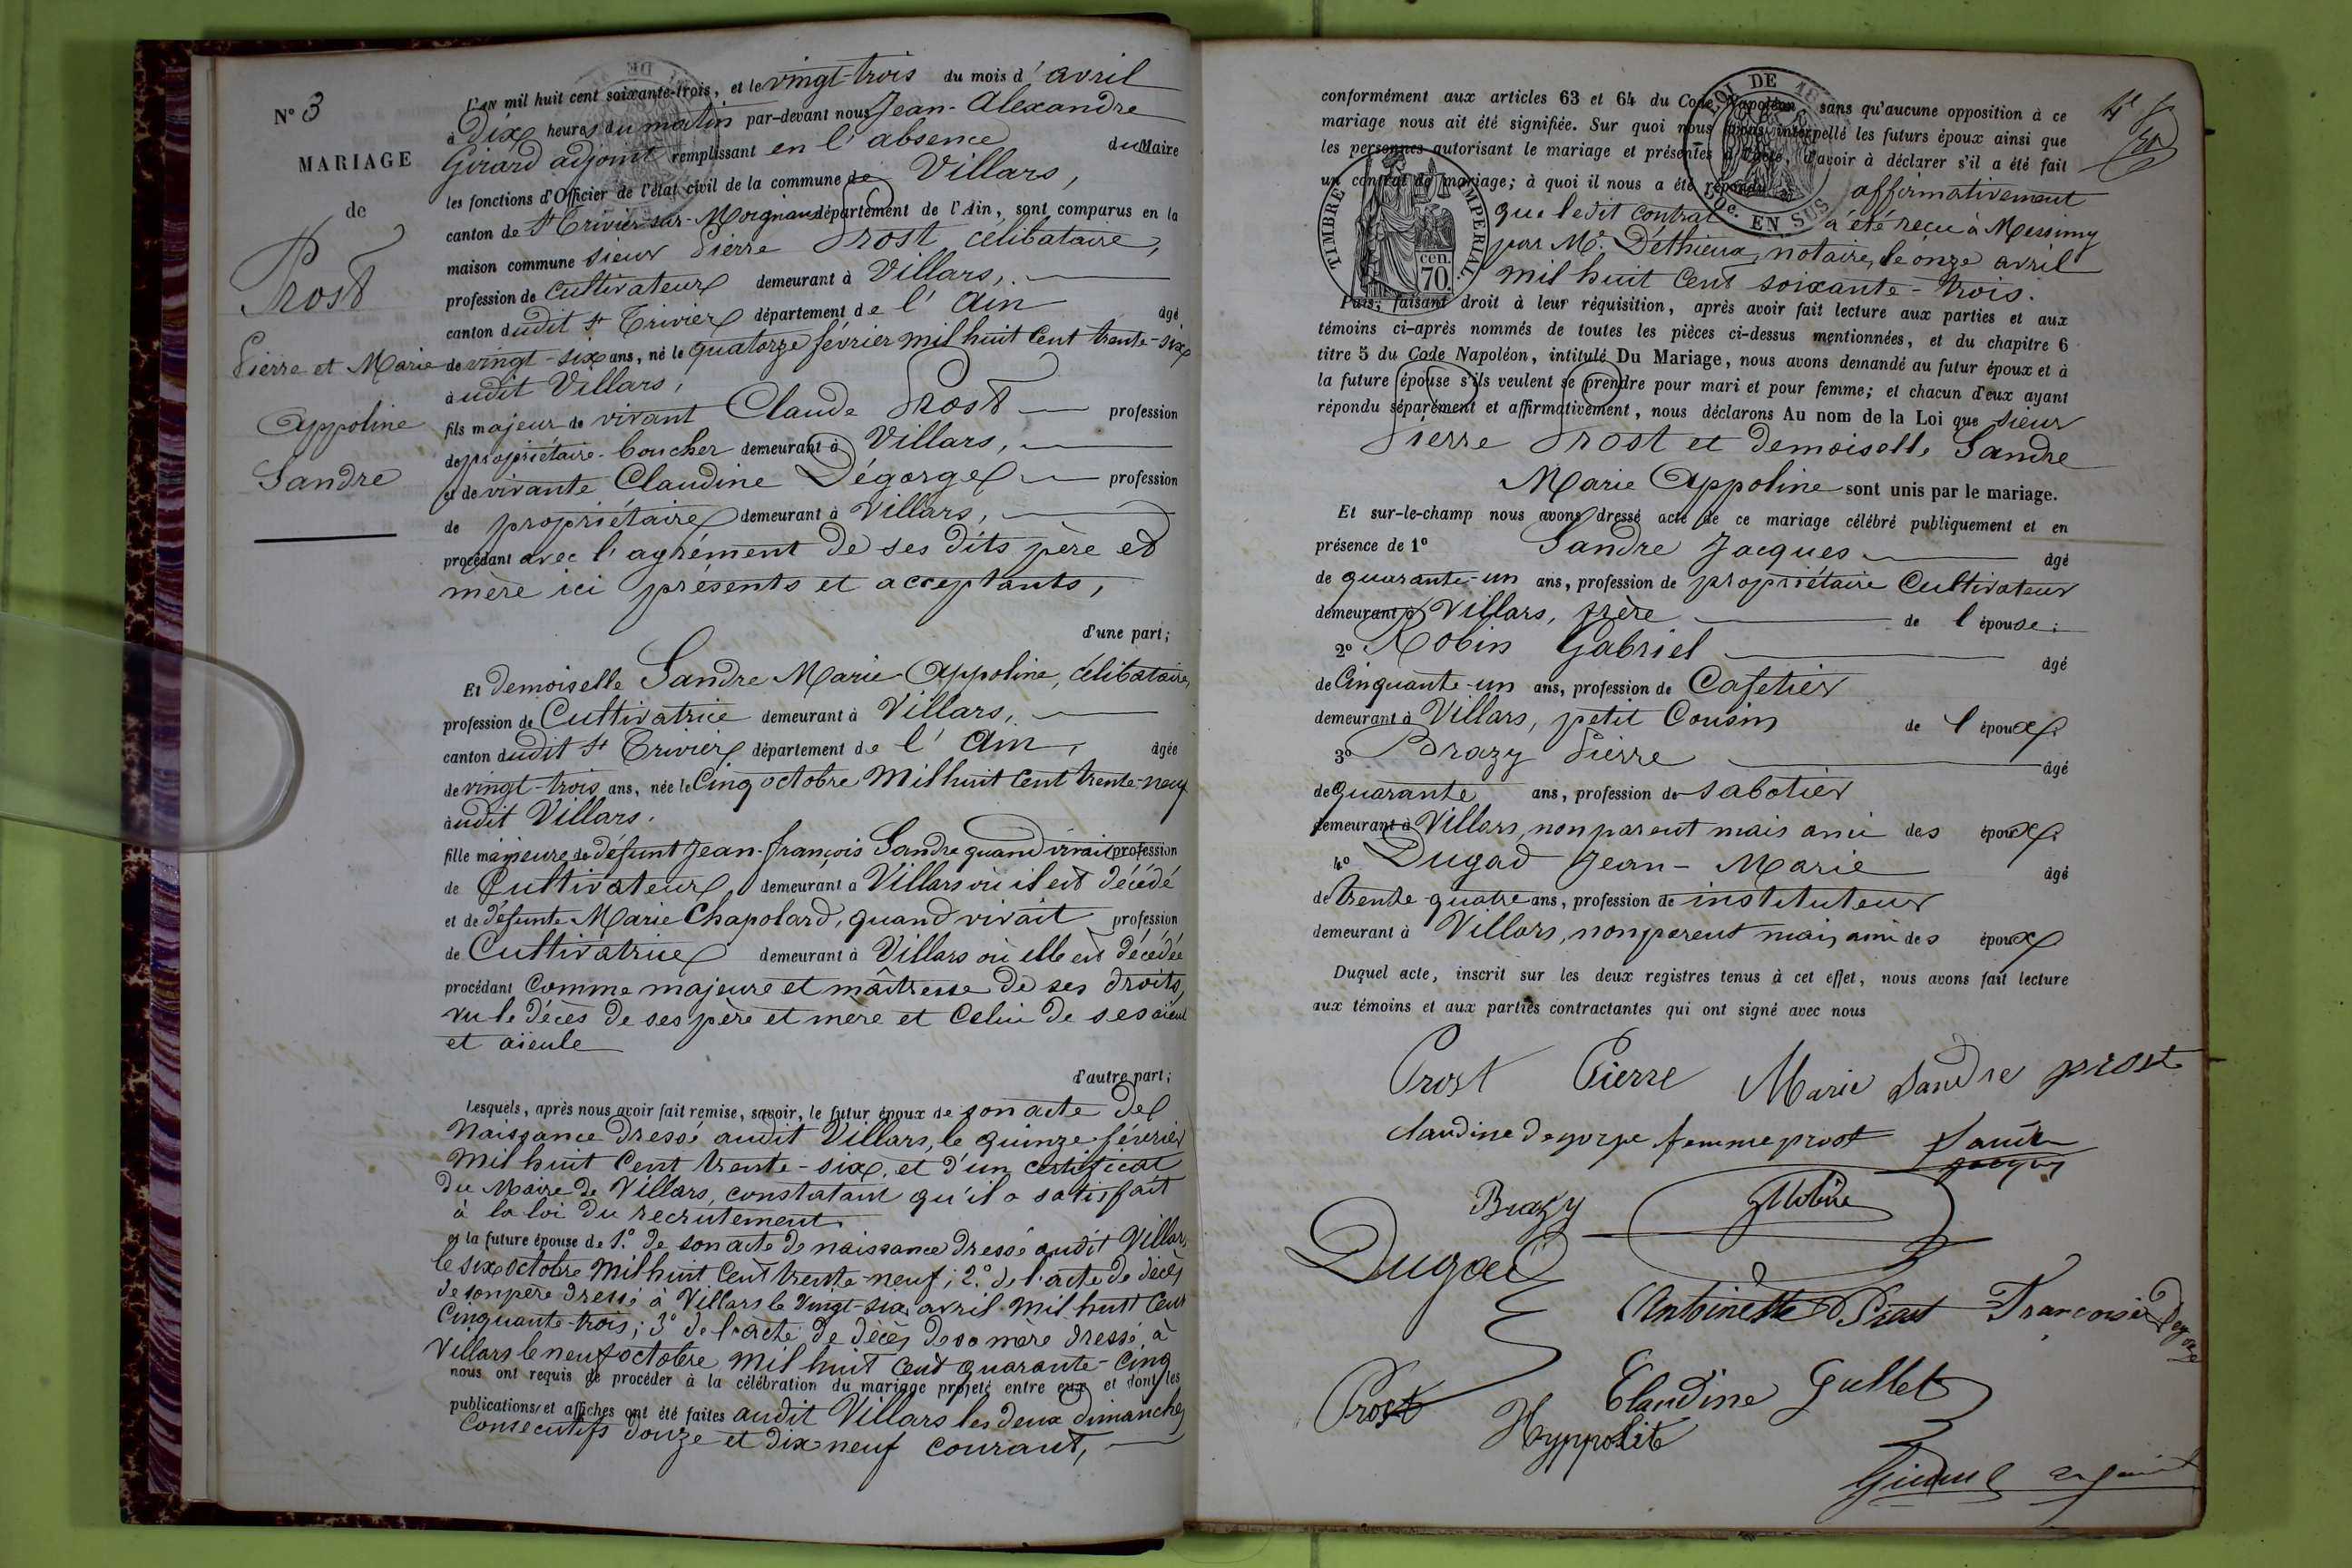 N° 3
MARIAGE
de
Prost
Pierre et Marie
Appoline
Sandre
L'AN mil huit cent soixante-trois, et le vingt-trois du mois d'avril
à Dix heures du matin par-devant nous Jean-Alexandre
Girard adjoint remplissant en l'absence du Maire
les fonctions d'Officier de l'état civil de la commune de Villars,
canton de St Trivier-sur-Moignans département de l'Ain, sont comparus en la
maison commune sieur Pierre Prost, célibataire,
profession de Cultivateur demeurant à Villars,
canton dudit St Trivier département de l'Ain âgé
de vingt-six ans, né le quatorze février mil huit cent trente-six
audit Villars,
fils majeur de vivant Claude Prost profession
de propriétaire-boucher demeurant à Villars,
et de vivante Claudine Dégorge profession
de propriétaire demeurant à Villars,
procédant avec l'agrément de ses dits père et
mère ici présents et acceptants,
d'une part;
Et Demoiselle Sandre Marie-Appoline, célibataire,
profession de Cultivatrice demeurant à Villars,
canton dudit St Trivier département de l'Ain, âgée
de vingt-trois ans, née le Cinq octobre Mil huit cent trente-neuf
audit Villars.
fille majeure de défunt Jean-François Sandre quand vivait profession
de Cultivateur demeurant à Villars où il est décédé
et de défunte Marie Chapolard, quand vivait profession
de Cultivatrice demeurant à Villars où elle est décédée
procédant Comme majeure et maîtresse de ses droits,
vu le décès de ses père et mère et Celui de ses aïeul
et aïeule
d'autre part;
Lesquels, après nous avoir fait remise, savoir, le futur époux de son acte de
Naissance dressé audit Villars, le quinze février
Mil huit Cent trente-six, et d'un certificat
du Maire de Villars, constatant qu'il a satisfait
à la loi du recrutement
et la future épouse de 1.° de son acte de naissance dressé audit Villars
le six octobre Mil huit Cent trente-neuf; 2.° de l'acte de décès
de son père dressé à Villars le Vingt-six avril mil huit Cent
Cinquante-trois; 3° de l'acte de décès de sa mère dressé à
Villars le neuf octobre mil huit Cent quarante-Cinq
nous ont requis de procéder à la célébration du mariage projeté entre eux et dont les
publications et affiches ont été faites audit Villars les deux dimanches
Consécutifs douze et dix neuf courant,
conformément aux articles 63 et 64 du Code Napoléon, sans qu'aucune opposition à ce
mariage nous ait été signifiée. Sur quoi nous avons interpellé les futurs époux ainsi que
les personnes autorisant le mariage et présentes à l'acte, d'avoir à déclarer s'il a été fait
un contrat de mariage; à quoi il nous a été répondu affirmativement
que ledit contrat a été reçu à Messimy
par Me. Déthieux, notaire, le onze avril
mil huit Cent soixante-trois.
TIMBRE IMPÉRIAL
cen.
70.
LOI DE 18
EN SUS
Puis, faisant droit à leur réquisition, après avoir fait lecture aux parties et aux
témoins ci-après nommés de toutes les pièces ci-dessus mentionnées, et du chapitre 6
titre 5 du Code Napoléon, intitulé Du Mariage, nous avons demandé au futur époux et à
la future épouse s'ils veulent se prendre pour mari et pour femme; et chacun d'eux ayant
répondu séparément et affirmativement, nous déclarons Au nom de la Loi que sieur
Pierre Prost et demoiselle Sandre
Marie Appoline sont unis par le mariage.
Et sur-le-champ nous avons dressé acte de ce mariage célébré publiquement et en
présence de 1° Sandre Jacques âgé
de quarante-un ans, profession de propriétaire Cultivateur
demeurant à Villars, frère de l'épouse;
2° Robin Gabriel âgé
de Cinquante-un ans, profession de Cafetier
demeurant à Villars, petit Cousin de l'époux;
3° Brazy Pierre âgé
de quarante ans, profession de sabotier
demeurant à Villars, non parent mais ami des époux;
4° Dugad Jean-Marie âgé
de trente-quatre ans, profession de instituteur
demeurant à Villars, non parent mais ami des époux
Duquel acte, inscrit sur les deux registres tenus à cet effet, nous avons fait lecture
aux témoins et aux parties contractantes qui ont signé avec nous
Prost Pierre Marie Sandre prost
claudine degorge femme prost Sandre
Jacques
Brazy GRobin
Dugad
Antoinette Prost Francoise Degorge
Prost Claudine Gullet
Hyppolite
Girard adjoint